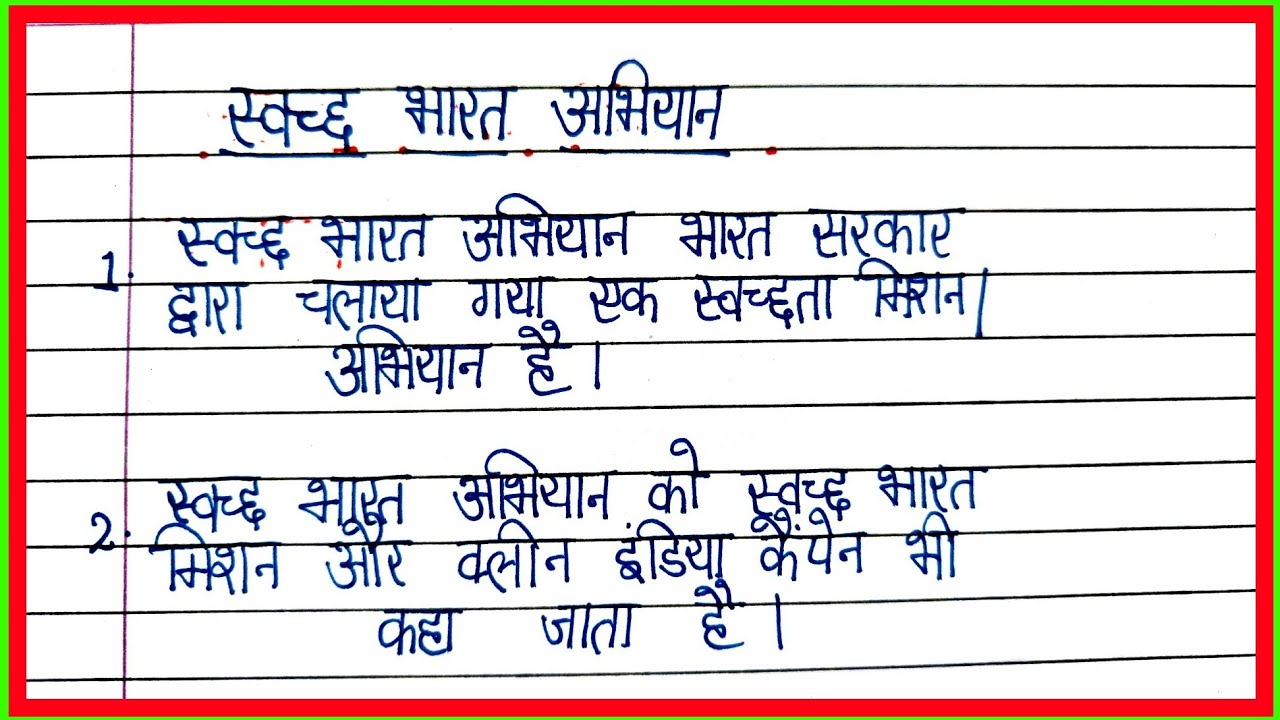 स्वच्छ भारत अभियान
1. स्वच्छ भारत अभियान भारत सरकार
द्वारा चलाया गया एक स्वच्छता मिशन/
अभियान है।
2. स्वच्छ भारत अभियान को स्वच्छ भारत
मिशन और क्लीन इंडिया कैंपेन भी
कहा जाता है।